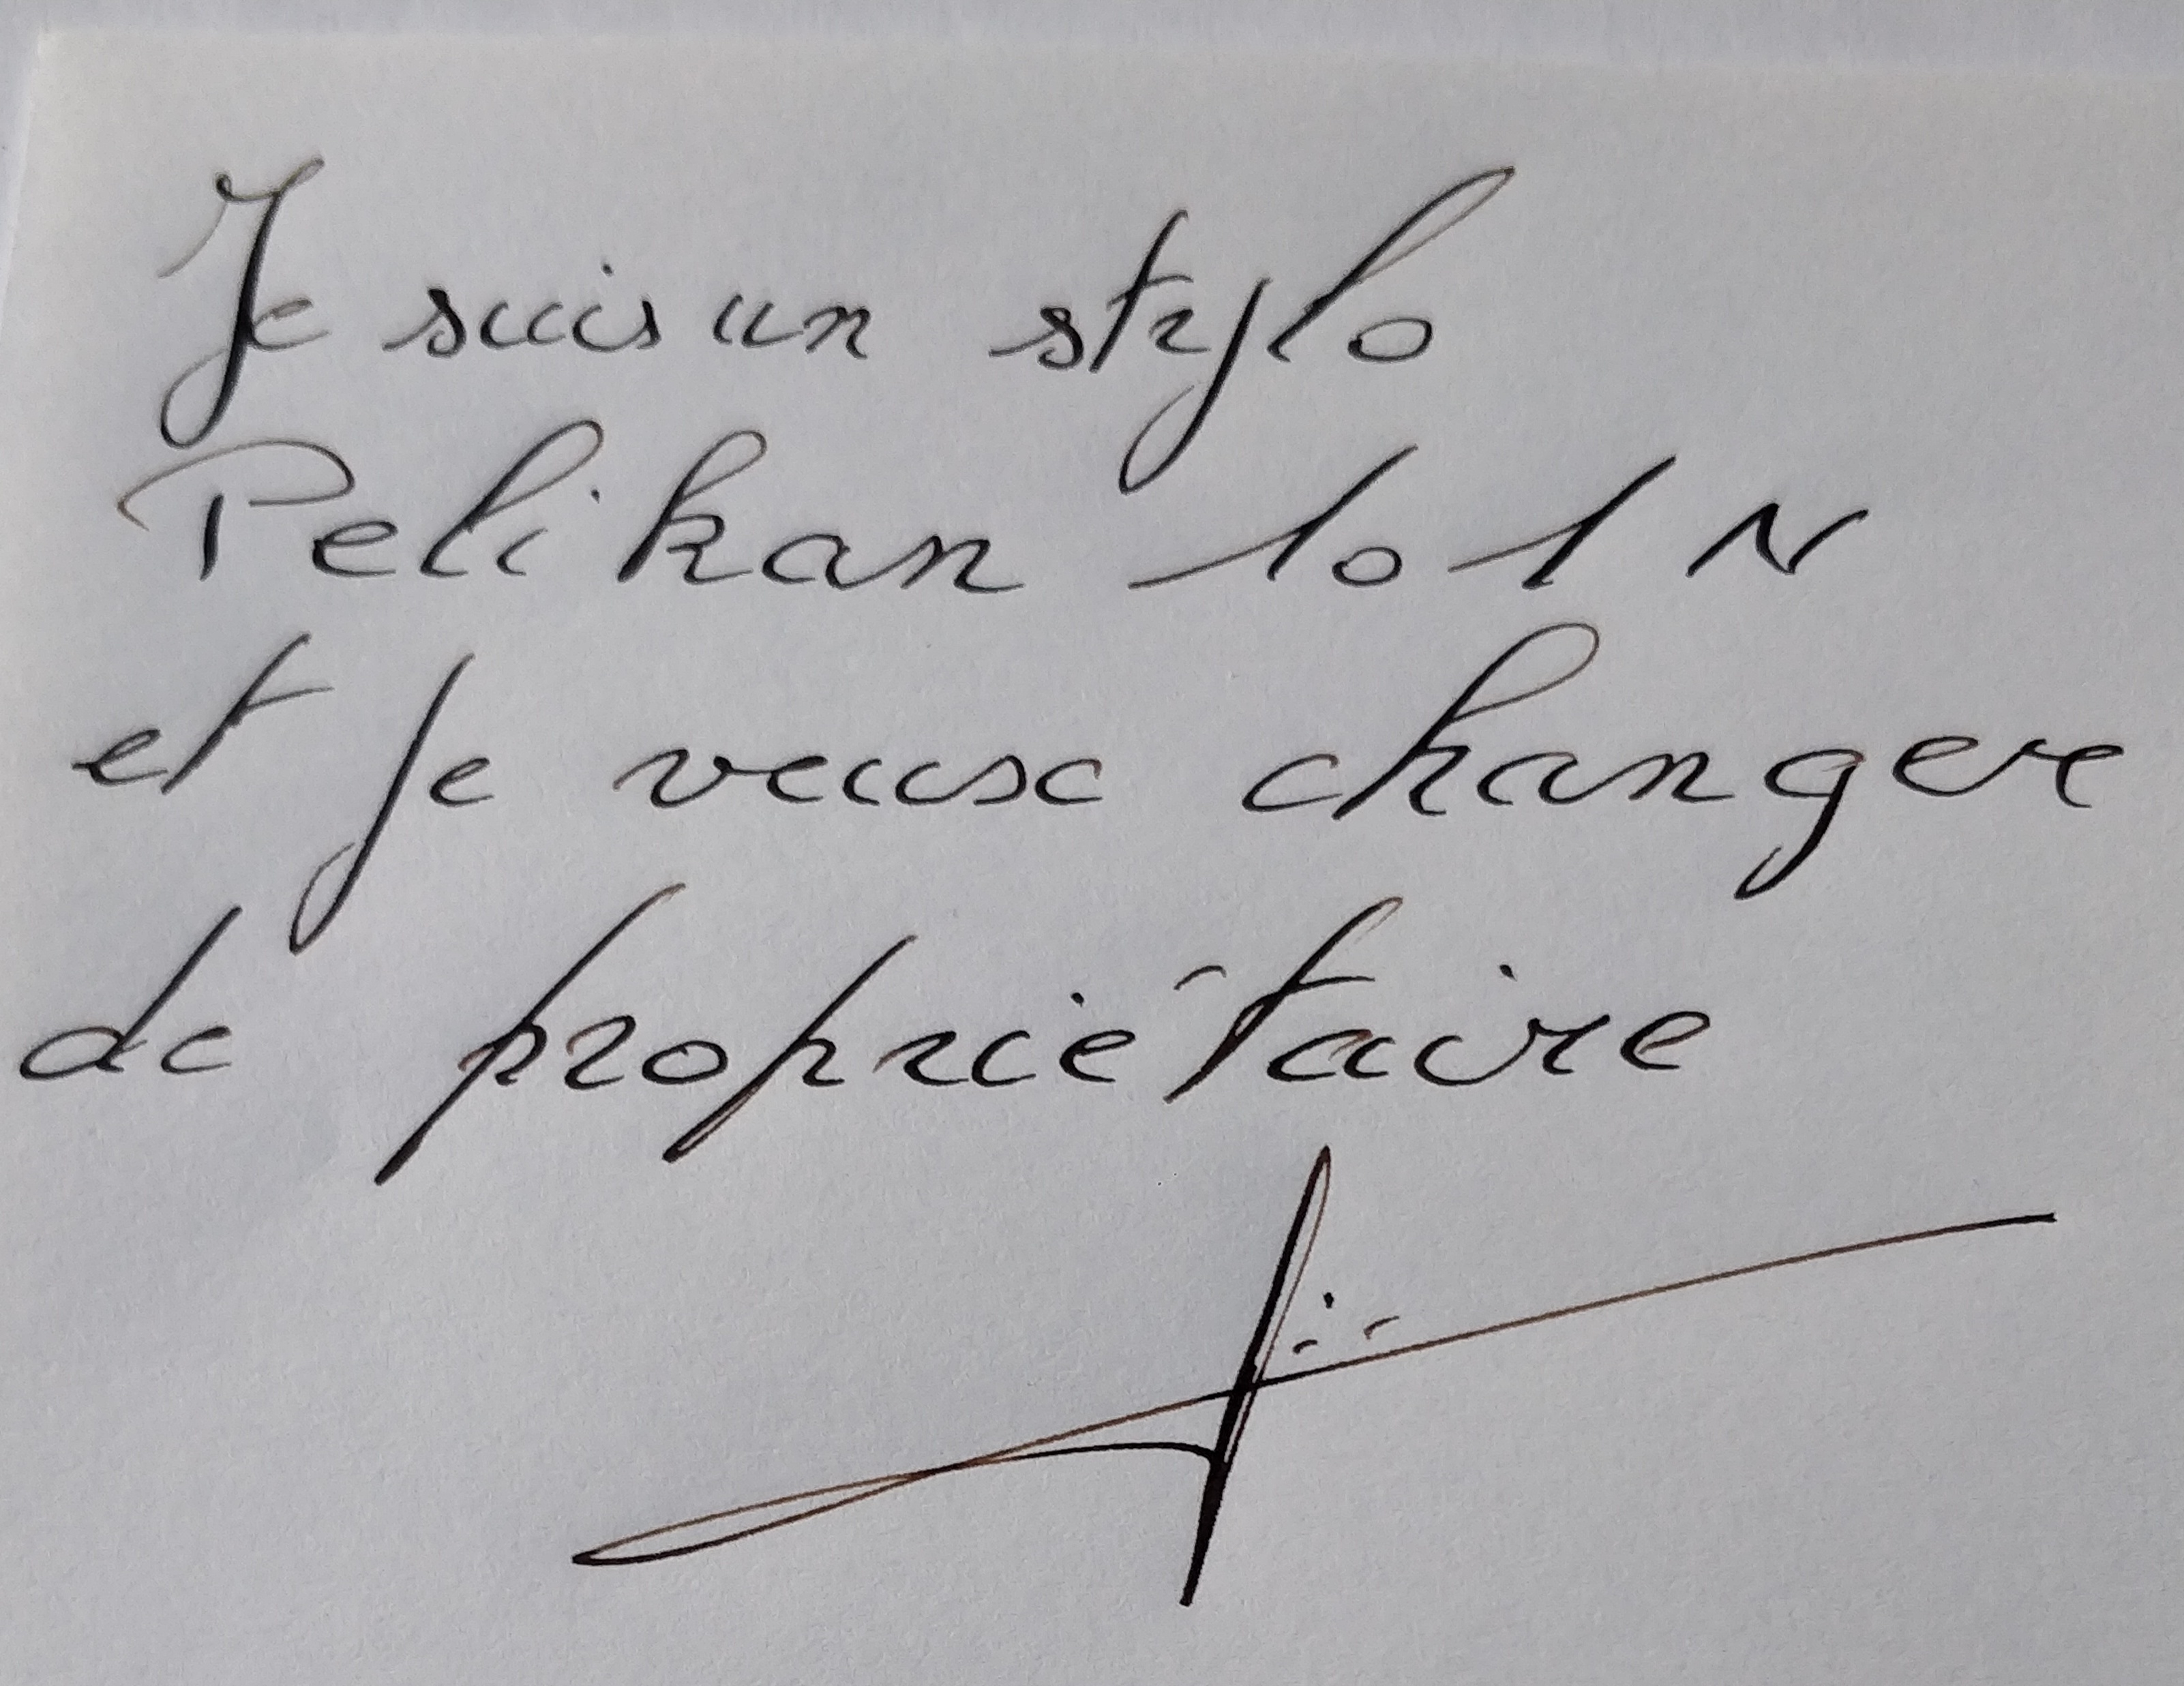 Je suis un stylo
Pelikan 101 N
et je veux changer
de propriétaire